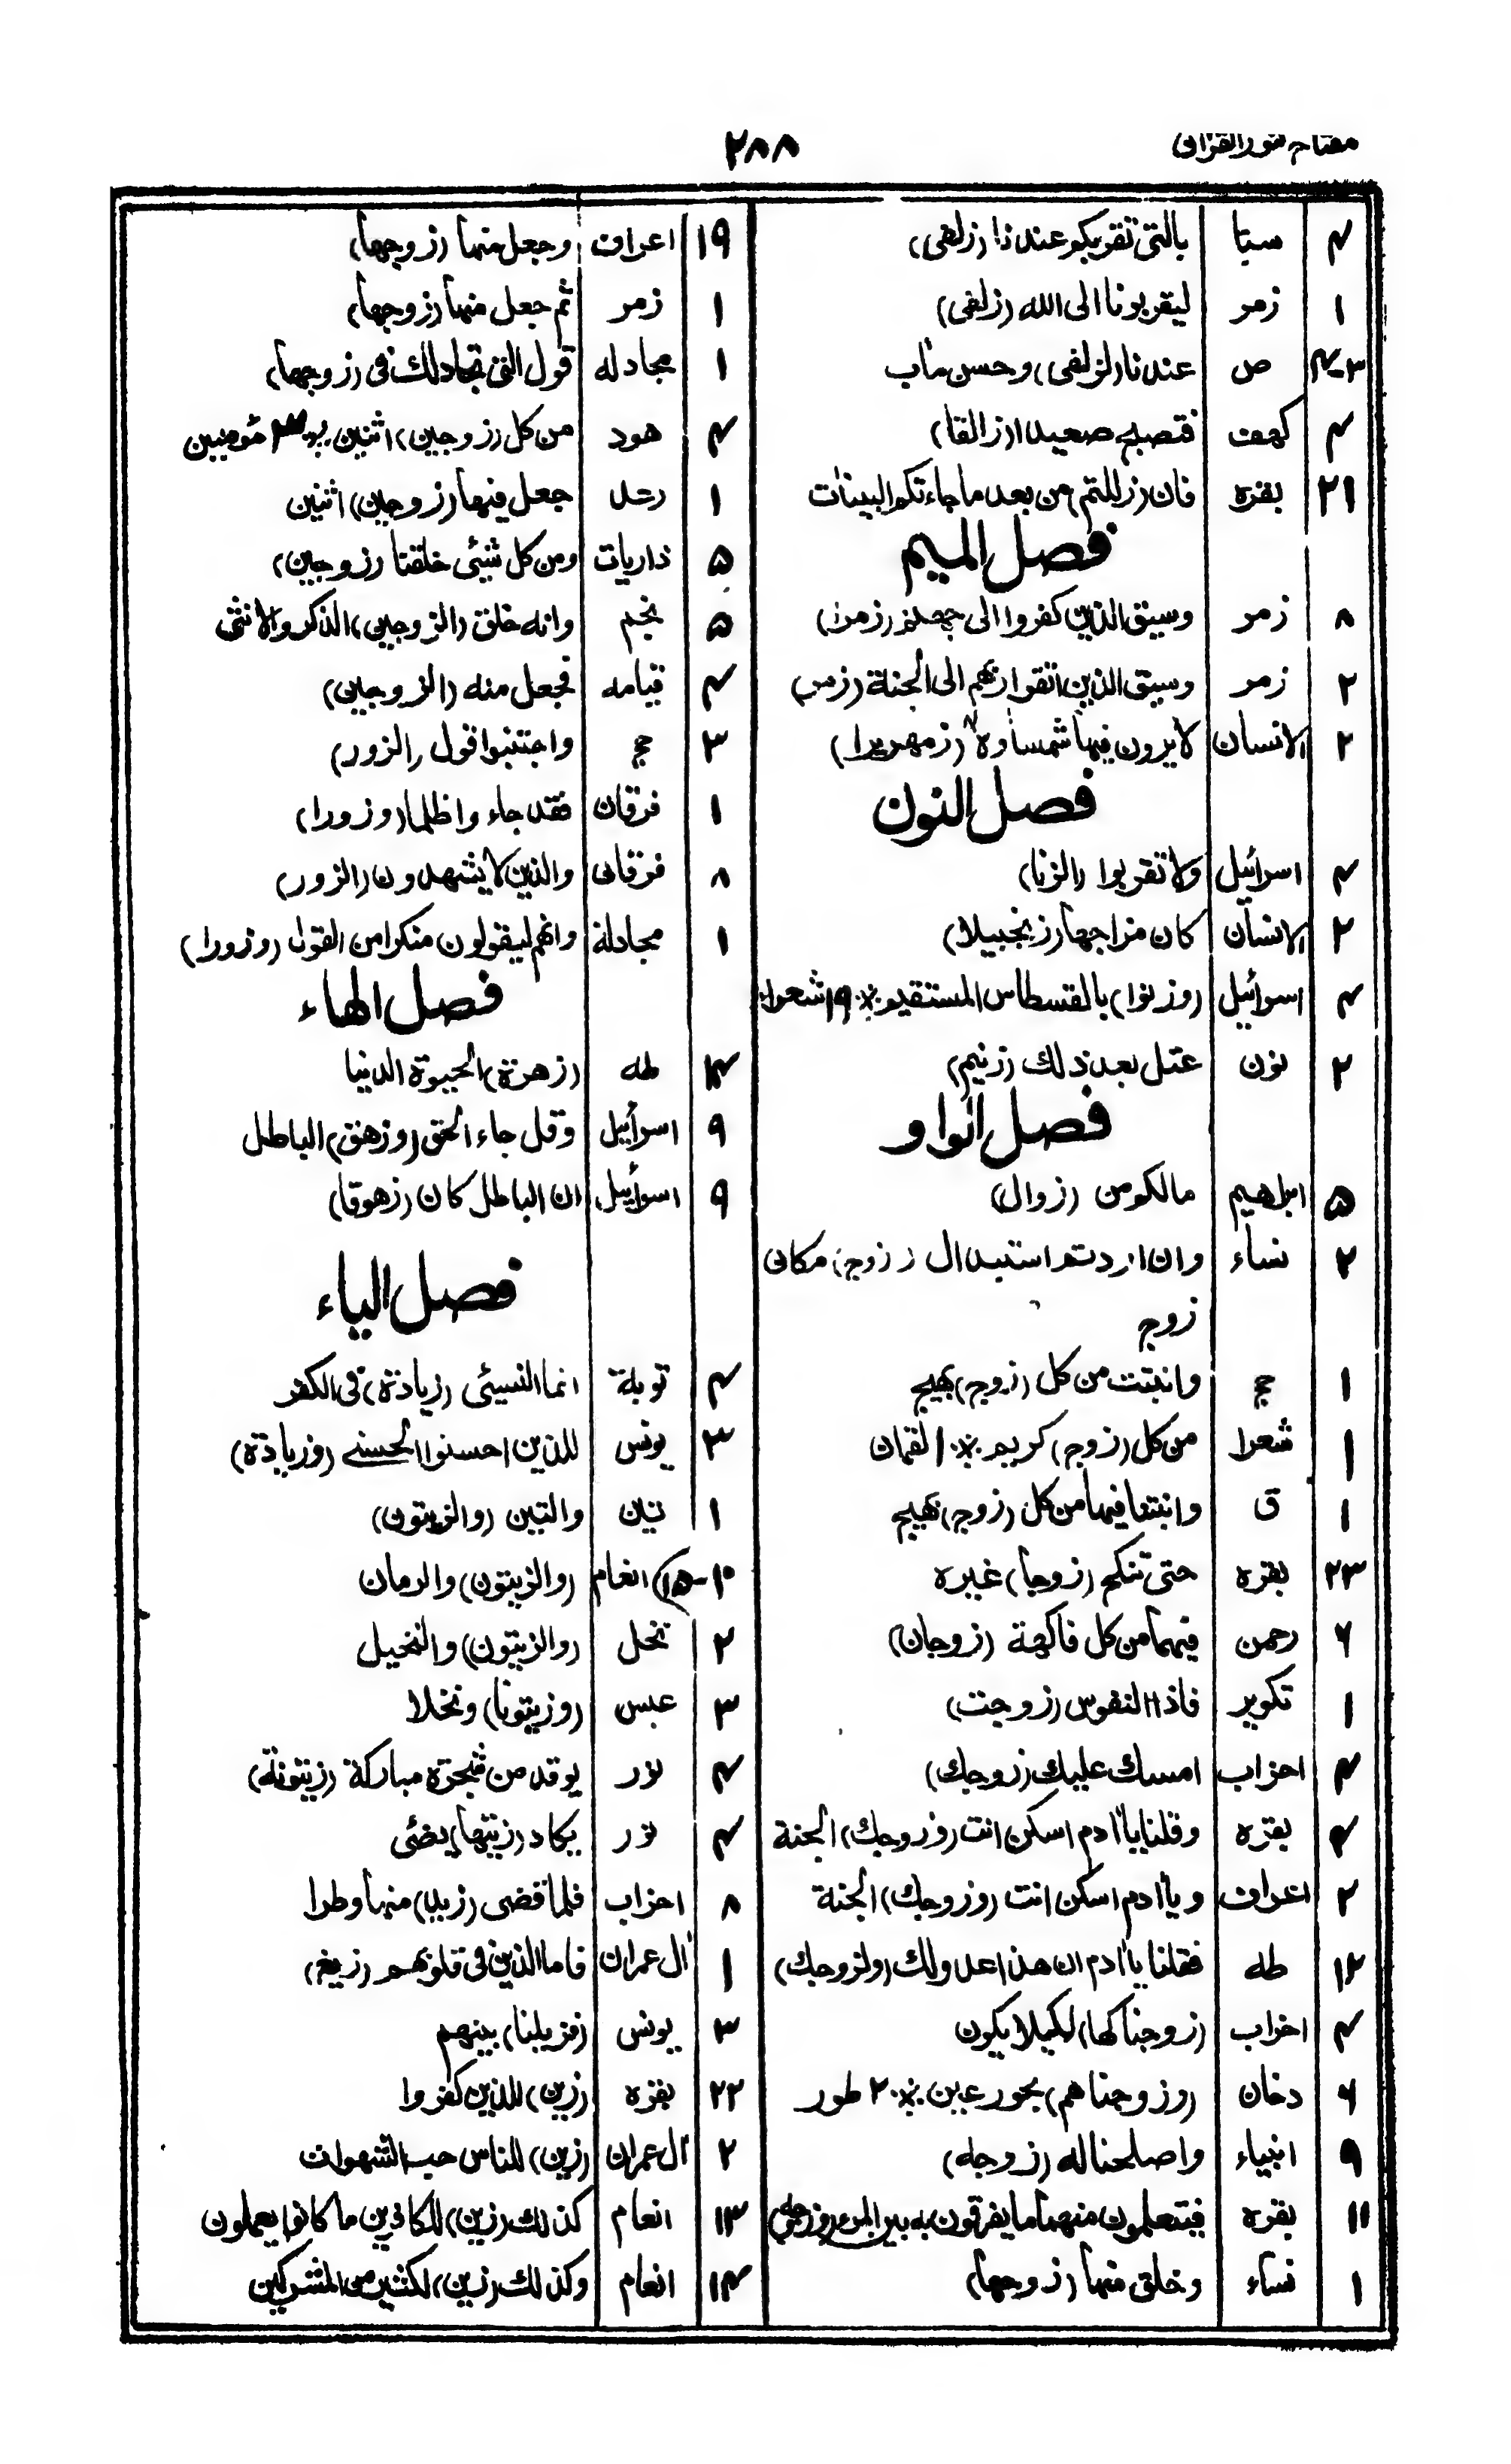 مفتاح نور القران
۲۸۸
۴ سبا بالتی تقربکم عندنا (زلفی)
۱ زمر لیقربونا الی الله (زلفی)
۳-۴ ص عندنا (لزلفی) وحسن مآب
۴ کهف فتصبح صعیدا (زالقا)
۲۱ بقره فان (زللتم) من بعد ما جاءتکم البینات
فصل المیم
۸ زمر وسیق الذین کفروا الی جهنم (زمرا)
۲ زمر وسیق الذین اتقوا ربهم الی الجنة (زمرا)
۲ الانسان لا یرون فیها شمسا ولا (زمهریرا)
فصل النون
۴ اسرائیل ولا تقربوا (الزنا)
۲ الانسان کان مزاجها (زنجبیلا)
۴ اسرائیل (وزنوا) بالقسطاس المستقیم ٪ ۹ شعراء
۲ نون عتل بعد ذلك (زنیم)
فصل الواو
۵ ابراهیم مالکم من (زوال)
۲ نساء وان اردتم استبدال (زوج) مکان
زوج
۱ حج وانبتت من کل (زوج) بهیج
۱ شعرا من کل (زوج) کریم ٪ ۱ لقمان
۱ ق وانبتنا فیها من کل (زوج) بهیج
۲۳ بقره حتی تنکح (زوجا) غیره
۶ رحمن فیهما من کل فاکهة (زوجان)
۱ تکویر فاذا النفوس (زوجت)
۴ احزاب امسك علیك (زوجك)
۴ بقره وقلنا یاآدم اسکن انت (وزوجك) الجنة
۲ اعراف ویاآدم اسکن انت (وزوجك) الجنة
۱۲ طه فقلنا یاآدم ان هذا عدو لك (ولزوجك)
۴ احزاب (زوجناکها) لکیلا یکون
۶ دخان (وزوجناهم) بحور عین ٪ ۲۰ طور
۹ انبیاء واصلحنا له (زوجه)
۱۱ بقره فیتعلمون منهما ما یفرقون به بین المرء (وزوجه)
۱ نساء وخلق منها (زوجها)
۱۹ اعراف وجعل منها (زوجها)
۱ زمر ثم جعل منها (زوجها)
۱ مجادله قول التی تجادلك فی (زوجها)
۴ هود من کل (زوجین) اثنین مؤمنین
۱ رعد جعل فیها (زوجین) اثنین
۵ ذاریات ومن کل شیئ خلقنا (زوجین)
۵ نجم وانه خلق (الزوجین) الذکر والانثی
۴ قیامه فجعل منه (الزوجین)
۳ حج واجتنبوا قول (الزور)
۱ فرقان فقد جاءوا ظلما (وزورا)
۸ فرقان والذین لا یشهدون (الزور)
۱ مجادلة وانهم لیقولون منکرا من القول (وزورا)
فصل الهاء
۴ طه (زهرة) الحیوة الدنیا
۹ اسرائیل وقل جاء الحق (وزهق) الباطل
۹ اسرائیل ان الباطل کان (زهوقا)
فصل الیاء
۴ توبة انما النسیئ (زیادة) فی الکفر
۳ یونس للذین احسنوا الحسنے (وزیادة)
۱ تین والتین (والزیتون)
۱۰-۱۵ انعام (والزیتون) والرمان
۲ نحل (والزیتون) والنخیل
۳ عبس (وزیتونا) ونخلا
۴ نور یوقد من شجرة مبارکة (زیتونة)
۴ نور یکاد (زیتها) یضئی
۸ احزاب فلما قضی (زید) منها وطرا
۱ آل عمران فاما الذین فی قلوبهم (زیغ)
۳ یونس (فزیلنا) بینهم
۲۲ بقره (زین) للذین کفروا
۲ آل عمران (زین) للناس حب الشهوات
۱۳ انعام کذلك (زین) للکافرین ما کانوا یعملون
۱۴ انعام وکذلك (زین) لکثیر من المشرکین